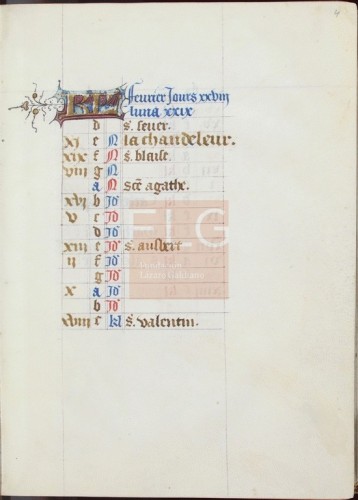 4
KL feurier Jours xxviii
luna xxix
d s. seuer.
xi e N la chandeleur.
xix f N s. blaise.
viii g N
a N sce agathe.
xvi b Id
v c Id
d Id
xiii e Id s. ausbert
ii f Id
g Id
x a Id
b Id
xviii c kl s. valentin.
FLG